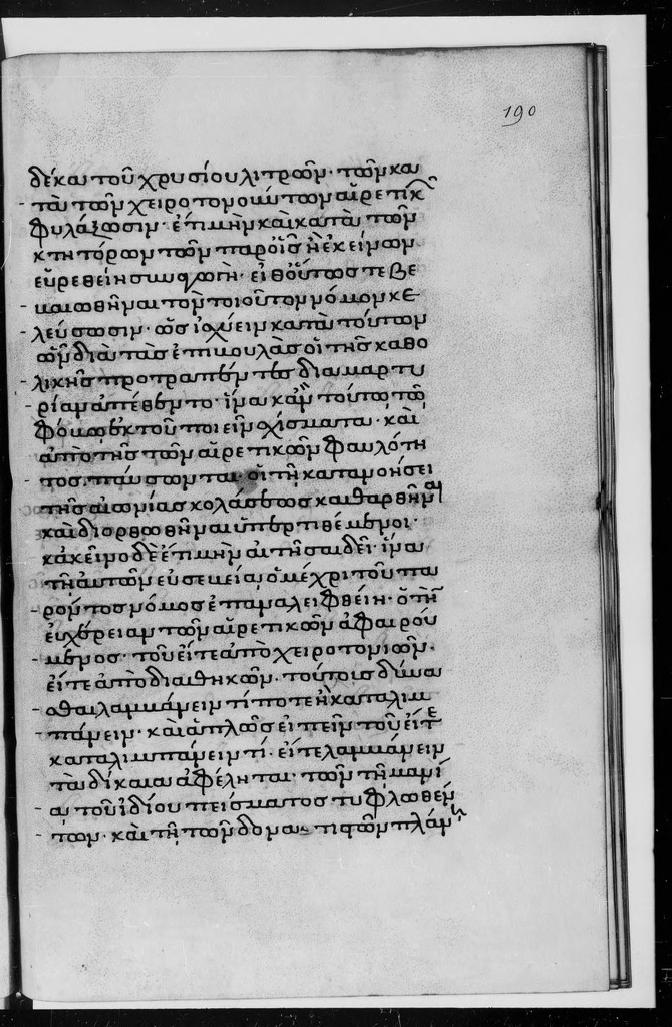 190
δέκα τοῦ χρυσίου λιτρῶν· τῶν κα
τὰ τῶν χειροτονούντων αἱρετικ
φυλάξωσιν· ἔτι μὴν καὶ κατὰ τῶν
κτητόρων τῶν παρ οἷς ἡ ἐκείνων
εὑρεθείη συναγωγὴ· εἶθ οὕτως τε βε
βαιωθῆναι τὸν τοιοῦτον νόμον κε
λεύσωσιν· ὡς ἰσχύειν κατὰ τούτων
ὧν διὰ τὰς ἐπιβουλὰς οἱ τῆς καθο
λικῆς προτραπέντες διαμαρτυ
ρίαν ἀπέθεντο· ἵνα κἂν τούτω τῶ
φόβω ἐκ τοῦ ποιεῖν σχίσματα· καὶ
ἀπὸ τῆς τῶν αἱρετικῶν φαυλότη
τος παύσωνται· οἱ τῆ κατανοήσει
τῆς αἰωνίας κολάσεως καθαρθῆναι
καὶ διορθωθῆναι ὑπερτιθέμενοι·
κἀκεῖνο δὲ ἔτι μὴν αἰτῆσαι δεῖ· ἵνα
τῆ αὐτῶν εὐσεβεία, ὁ μέχρι τοῦ πα
ρόντος νόμος ἐπαναλειφθείη· ὁ τὴν
εὐχέρειαν τῶν αἱρετικῶν ἀφαιρού
μενος· τοῦ εἴτε ἀπὸ χειροτονιῶν·
εἴτε ἀπὸ διαθηκῶν· τούτοις δύνα
σθαι λαμβάνειν τί ποτε ἢ καταλιμ
πάνειν· καὶ ἁπλῶς εἰπεῖν τοῦ εἴτε
καταλιμπάνειν τί· εἴτε λαμβάνειν
τὰ δίκαια ἀφέληται· τῶν τῆ μανί
α, τοῦ ἰδίου πείσματος τυφλωθέν
των· καὶ τῆ τῶν δονατιστῶν πλάν